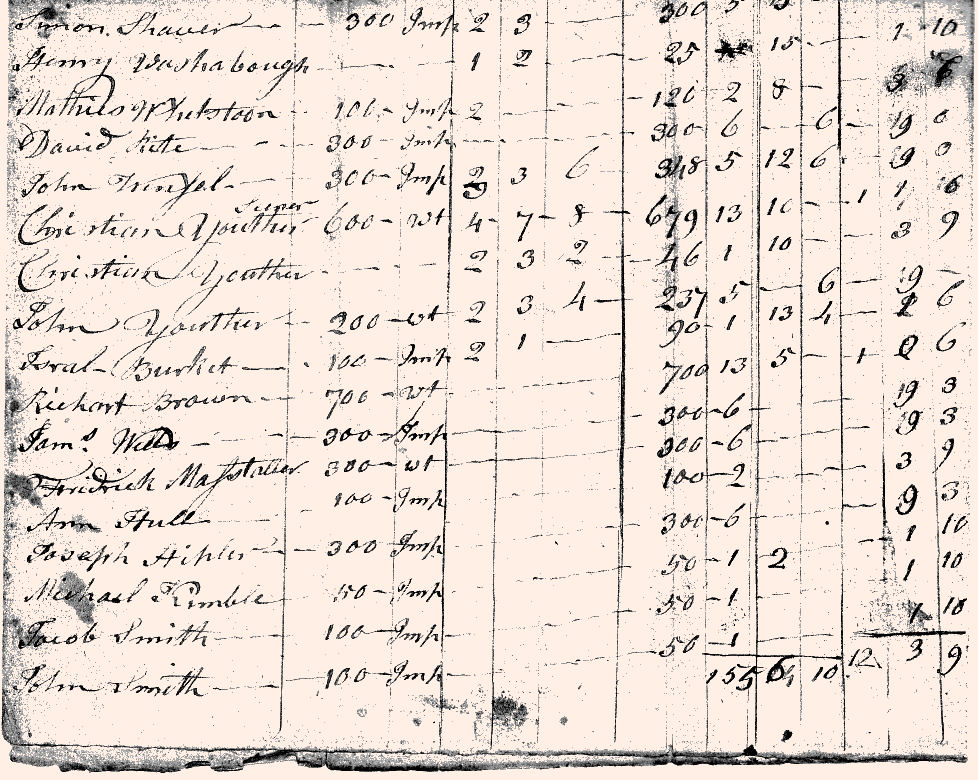 Simon Shaver 300 Imp 2 3 300 5 15 1 10
Henry Washabough 1 2 25 15 3 6
Mathies Whetstoon 100 Imp 2 120 2 8
David Kite 300 Imp 300 6 6 19 0
John 300 Imp 2 3 6 348 5 12 6 19 3
Christian Youther Siener 600 wt 4 7 8 679 13 10 1 1
Christian Youther 2 3 2 46 1 10 3 9
John Youther 200 wt 2 3 4 237 5 6 19
Isral Burket 100 Imp 2 1 90 1 13 4 6
Richart Brown 700 wt 700 13 5 1 6
Jams Wills 300 Imp 300 6 19 3
Fredrick 300 wt 300 6 19 3
Ann Hull 100 Imp 100 2 3 9
Joseph Hipler 300 Imp 300 6 9 3
Michael Kimble 50 Imp 50 1 2 1 10
Jacob Smith 100 Imp 50 1 1 10
John Smith 100 Imp 50 1 1 10
155 6 10 12 3 9